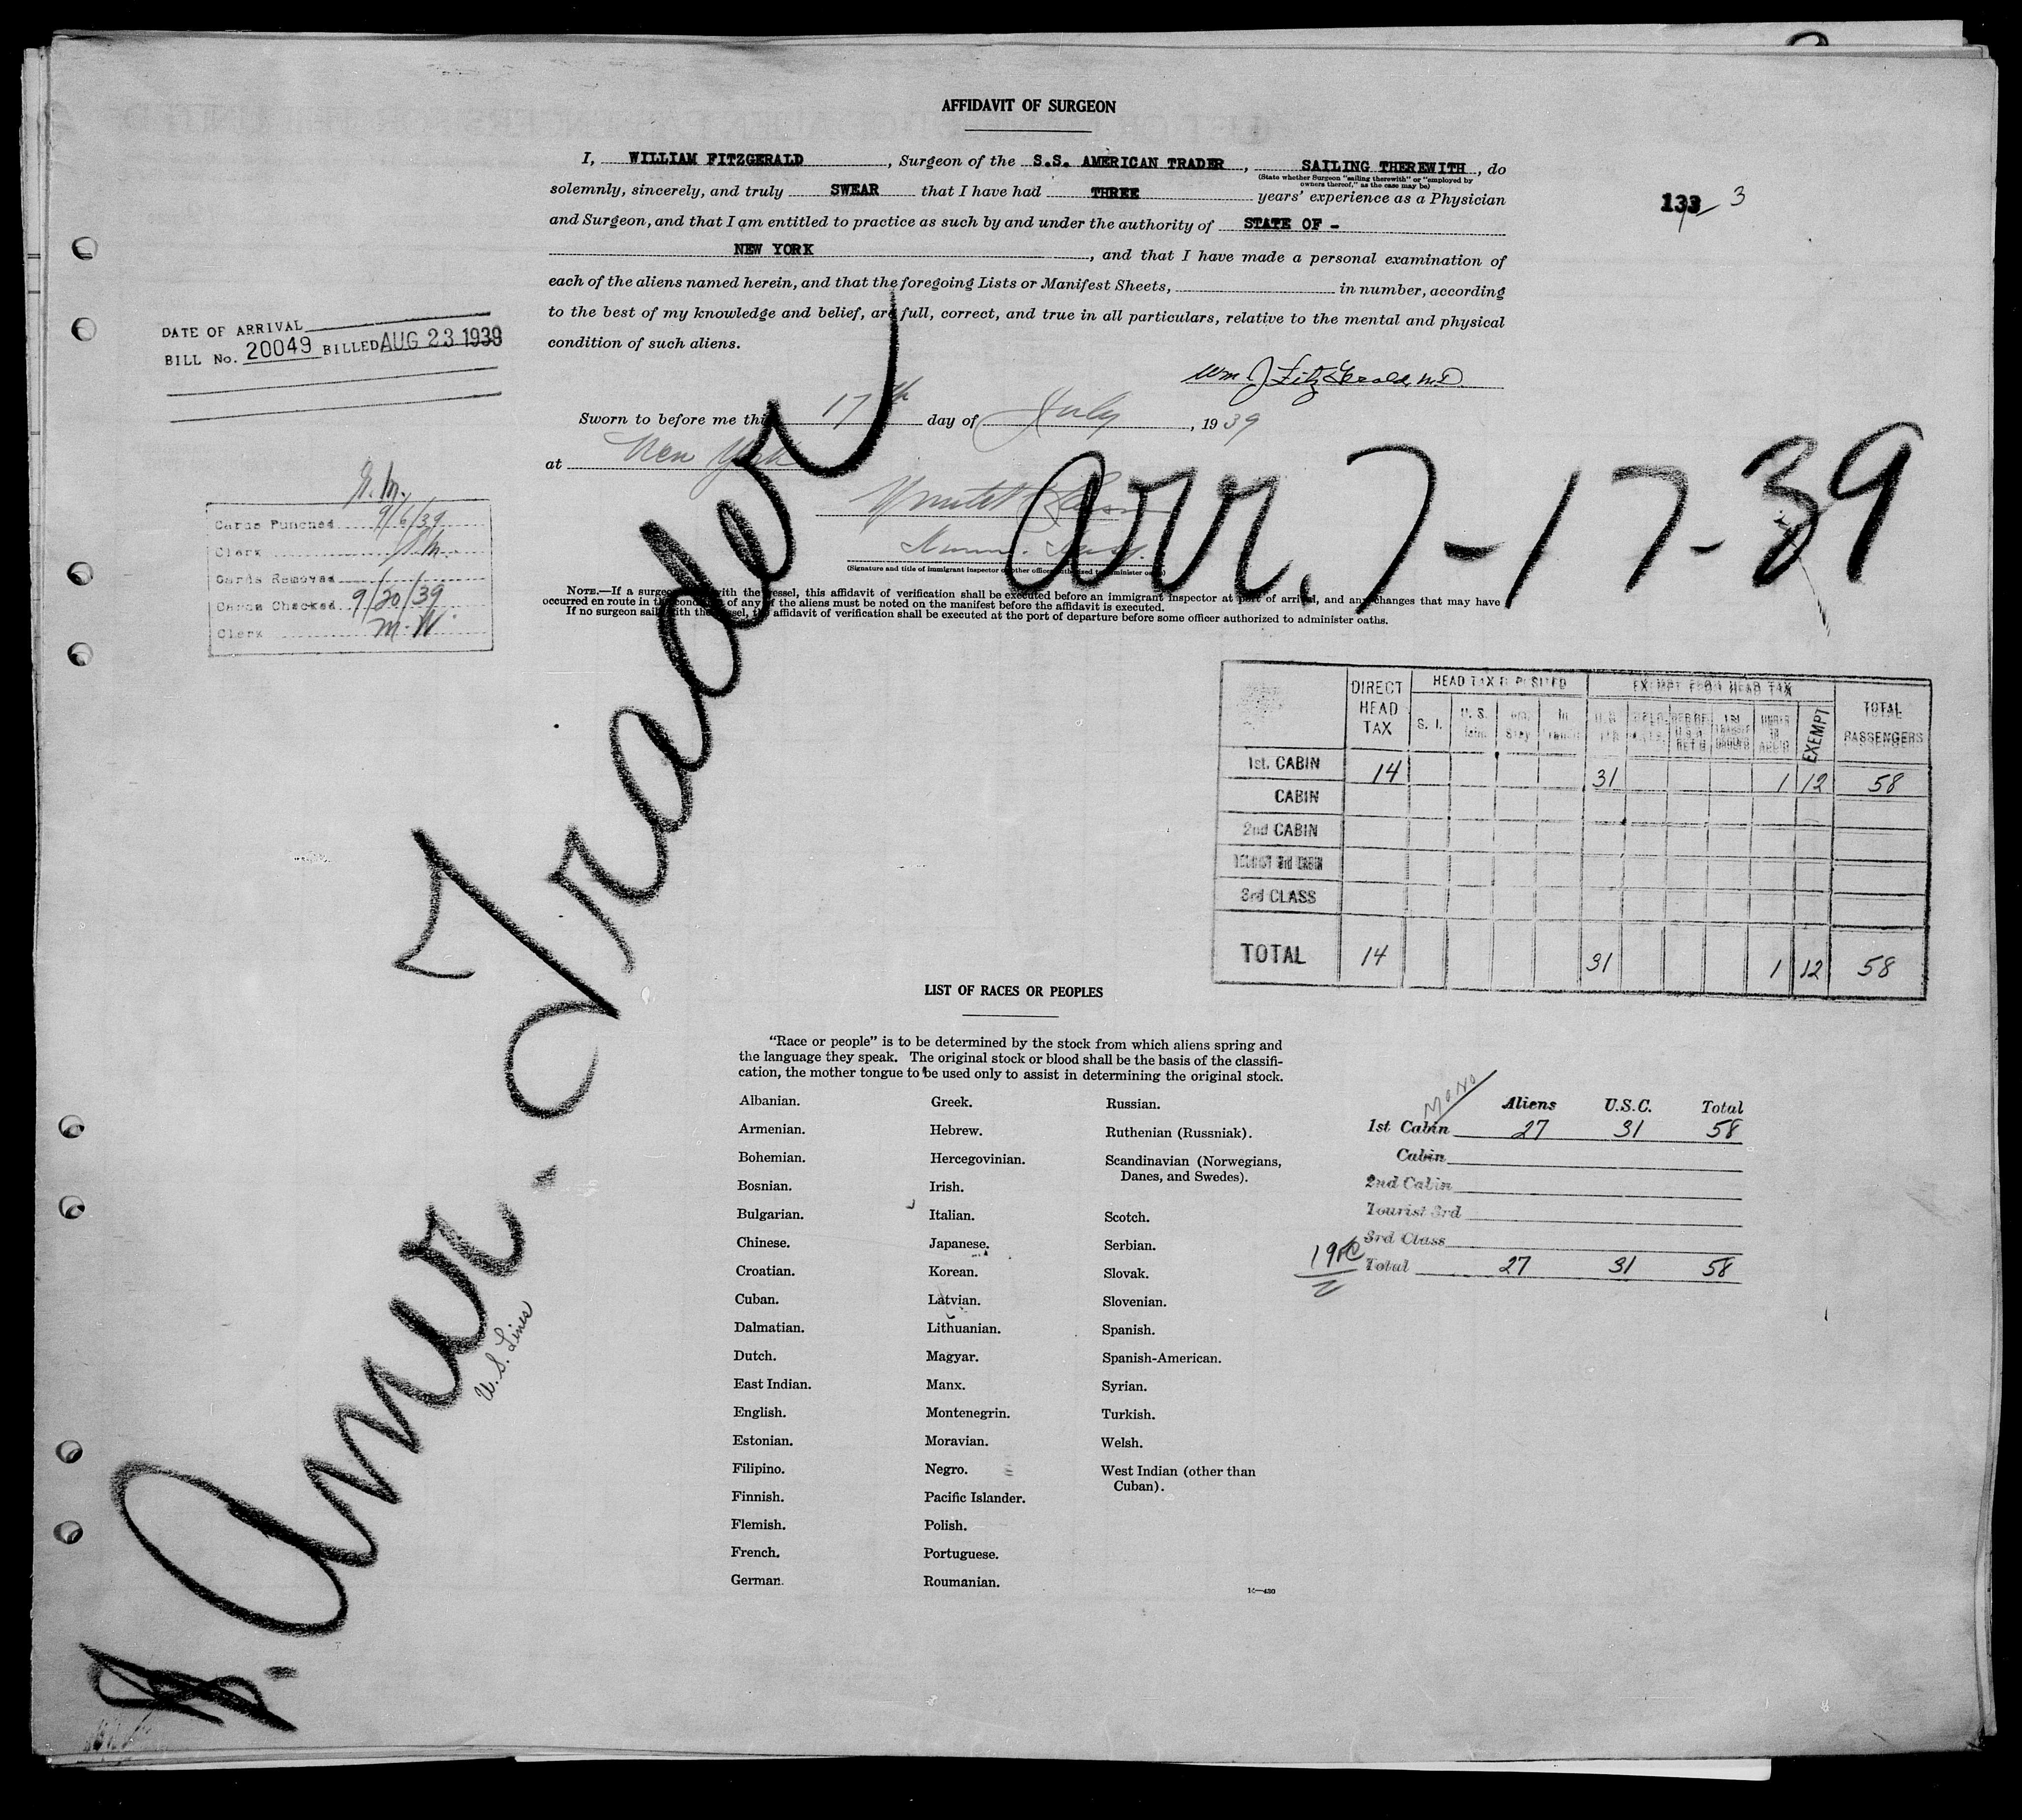 AFFIDAVIT OF SURGEON
I, WILLIAM FITZGERALD, Surgeon of the S.S. AMERICAN TRADER, SAILING THEREWITH, do
(State whether Surgeon "sailing therewith" or "employed by
owners thereof," as the case may be)
solemnly, sincerely, and truly SWEAR that I have had THREE years' experience as a Physician
and Surgeon, and that I am entitled to practice as such by and under the authority of STATE OF -
NEW YORK, and that I have made a personal examination of
each of the aliens named herein, and that the foregoing Lists or Manifest Sheets, in number, according
to the best of my knowledge and belief, are full, correct, and true in all particulars, relative to the mental and physical
condition of such aliens.
3
DATE OF ARRIVAL
BILL No. 20049 BILLED AUG 23 1939
Wm J FitzGerald, M.D.
Sworn to before me this 17th day of July, 1939
at New York
(Signature and title of immigrant inspector or other officer authorized to administer oath)
Arr. 7-17-39
Cards Punched 9/6/39
Clerk
Cards Removed
Cards Checked 9/20/39
Clerk M.W.
NOTE.—If a surgeon sails with the vessel, this affidavit of verification shall be executed before an immigrant inspector at port of arrival, and any changes that may have
occurred en route in the condition of any of the aliens must be noted on the manifest before the affidavit is executed.
If no surgeon sails with the vessel, the affidavit of verification shall be executed at the port of departure before some officer authorized to administer oaths.
Amer. Trader
U.S. Lines
DIRECT HEAD TAX
HEAD TAX DEPOSITED
EXEMPT FROM HEAD TAX
TOTAL PASSENGERS
S. I.
EXEMPT
1st. CABIN 14 31 1 12 58
CABIN
2nd CABIN
TOURIST 3rd CABIN
3rd CLASS
TOTAL 14 31 1 12 58
LIST OF RACES OR PEOPLES
"Race or people" is to be determined by the stock from which aliens spring and
the language they speak. The original stock or blood shall be the basis of the classifi-
cation, the mother tongue to be used only to assist in determining the original stock.
Albanian.
Armenian.
Bohemian.
Bosnian.
Bulgarian.
Chinese.
Croatian.
Cuban.
Dalmatian.
Dutch.
East Indian.
English.
Estonian.
Filipino.
Finnish.
Flemish.
French.
German.
Greek.
Hebrew.
Hercegovinian.
Irish.
Italian.
Japanese.
Korean.
Latvian.
Lithuanian.
Magyar.
Manx.
Montenegrin.
Moravian.
Negro.
Pacific Islander.
Polish.
Portuguese.
Roumanian.
Russian.
Ruthenian (Russniak).
Scandinavian (Norwegians,
Danes, and Swedes).
Scotch.
Serbian.
Slovak.
Slovenian.
Spanish.
Spanish-American.
Syrian.
Turkish.
Welsh.
West Indian (other than
Cuban).
Aliens U.S.C. Total
1st Cabin 27 31 58
Cabin
2nd Cabin
Tourist 3rd
3rd Class
Total 27 31 58